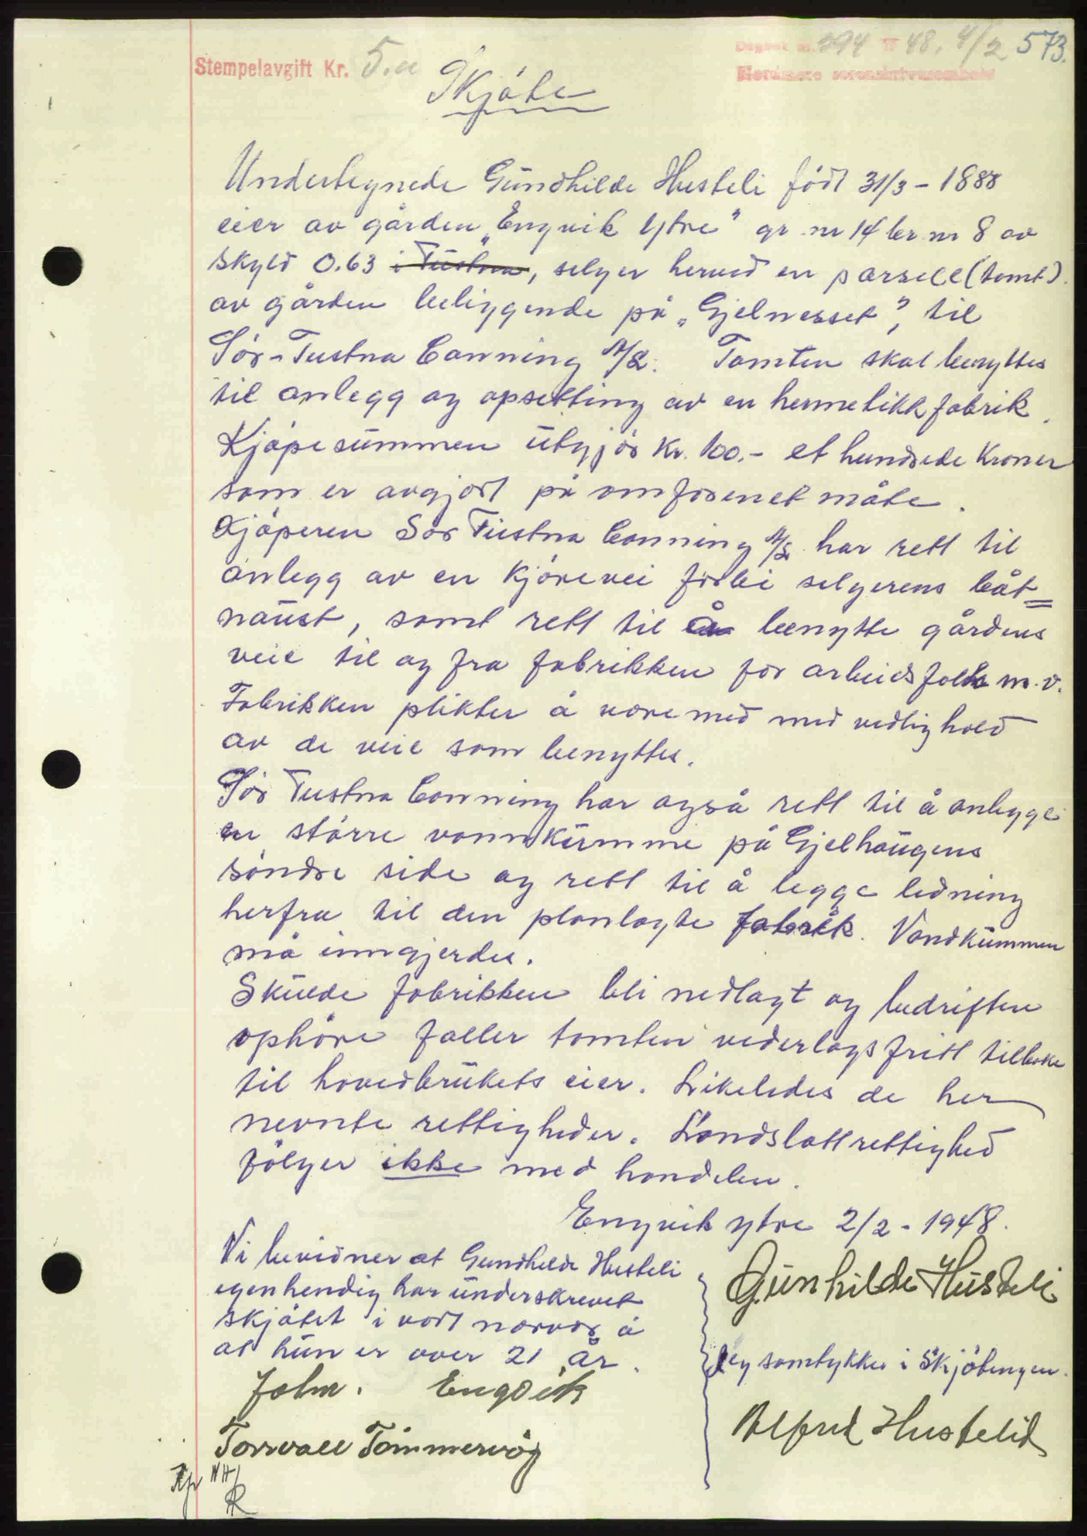 Stempelavgift Kr. 5.
Dagbok nr. 394 48. 4/2 573.
Nordmøre sorenskriverembede
Skjöte
Undertegnede Gundhilde Husteli född 31/3 - 1888
eier av gården „Engvik Ytre" gr. nr 14 br. nr 8 av
Skyld 0.63 i Tustna, selger herved en parsell (tomt)
av gården beliggende på „Gjelnesset", til
Sör-Tustna Canning A/S. Tomten skal benyttes
til anlegg og opsetting av en hermetikkfabrik.
Kjöpesummen utgjör Kr. 100.- et hundrede Kroner
som er avgjort på omforenet måte.
Kjöperen Sör Tustna Canning A/S. har rett til
anlegg av en Kjörevei forbi selgerens båt=
naust, samt rett til å benytte gårdens
veie til og fra fabrikken for arbeidsfolk m.v.
Fabrikken plikter å være med med vedlighold
av de veie som benyttes.
Sör Tustna Canning har også rett til å anlegge
en större vannkumme på Gjelhaugens
söndre side og rett til å legge ledning
herfra til den planlagte fabrik. Vandkummen
må inngjerdes.
Skulde fabrikken bli nedlagt og bedriften
ophöre faller tomten vederlagsfritt tilbake
til hovedbrukets eier. Likeledes de her
nevnte rettigheder. Landslottrettighed
fölger ikke med handelen.
Engvik ytre 2/2 - 1948.
Vi bevidner at Gundhilde Husteli
egenhendig har underskrevet
skjötet i vort nærvær å
at hun er over 21 år.
Gunhilde Husteli
Jeg samtykker i Skjötingen.
John. Engvik
Alfred Hustelid
Torvall Tömmervåg